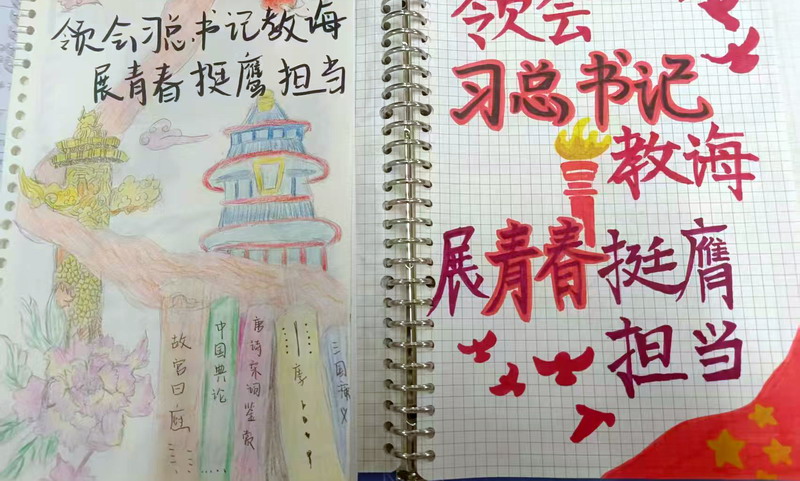 领会习总书记教诲
展青春挺鹰担当
故宫日历
中国典论
唐诗宋词鉴赏
三国演义
领会
习总书记
教诲
展青春挺膺
担当